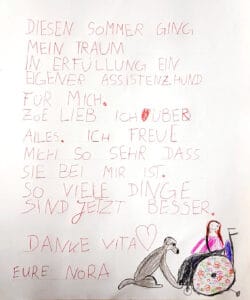 DIESEN SOMMER GING
MEIN TRAUM
IN ERFÜLLUNG EIN
EIGENER ASSISTENZHUND
FÜR MICH.
ZOE LIEB ICH ÜBER
ALLES. ICH FREUE
MICH SO SEHR DASS
SIE BEI MIR IST.
SO VIELE DINGE
SIND JETZT BESSER.
DANKE VITA
EURE NORA